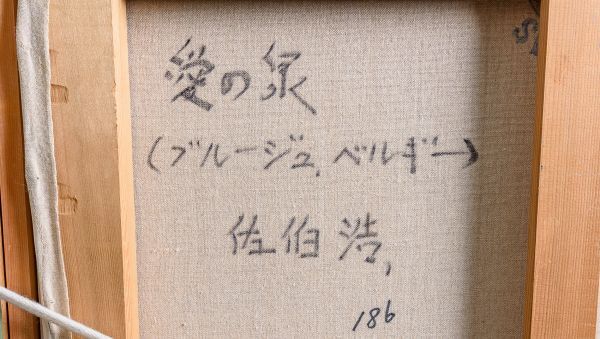 愛の泉
(ブルージュ、ベルギー)
佐伯浩、
186